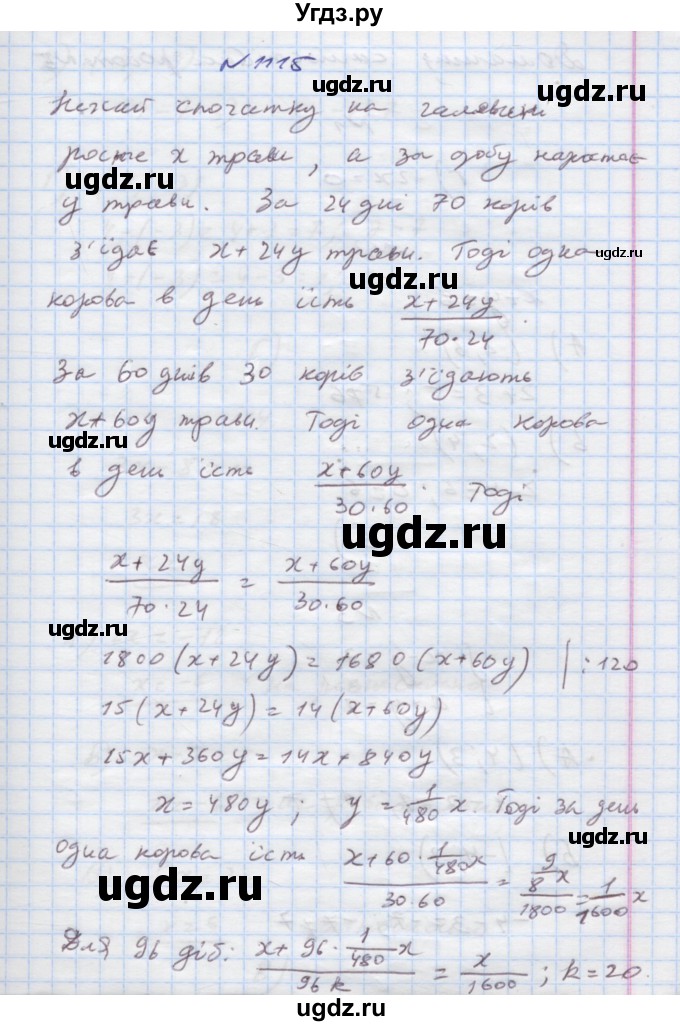 Угдз.ру
N 1115
Нехай спочатку на галявині
росте x трави, а за добу наростає
y трави. За 24 дні 70 корів
з'їдає x + 24y трави. Тоді одна
корова в день їсть \frac{x+24y}{70·24}.
За 60 днів 30 корів з'їдають
x+60y трави. Тоді одна корова
в день їсть \frac{x+60y}{30·60}. Тоді
\frac{x+24y}{70·24} = \frac{x+60y}{30·60}
1800(x+24y)=1680(x+60y) |:120
15(x+24y)=14(x+60y)
15x+360y=14x+840y
x=480y; y=\frac{1}{480}x. Тоді за день
одна корова їсть \frac{x+60·\frac{1}{480}x}{30·60}=\frac{\frac{9}{8}x}{1800}=\frac{1}{1600}x
Для 96 діб: \frac{x+96·\frac{1}{480}x}{96k}=\frac{x}{1600}; k=20.
ugdz.ru
ugdz.ru
ugdz.ru
ugdz.ru
ugdz.ru
ugdz.ru
ugdz.ru
ugdz.ru
ugdz.ru
ugdz.ru
ugdz.ru